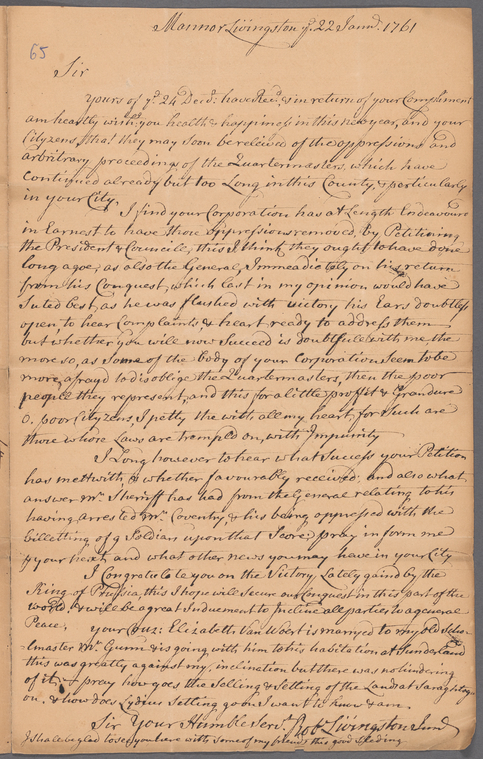 Mannor Livingston ye. 22 Janrd. 1761
65
Sir
Yours of ye. 24 Decd: have Recd. & in return of your Compliment
am heartly wish you health & happiness in this new year, and your
Cityzens, that they may soon be releived of the oppressions and
arbitrary proceedings of the Quartermasters, which have
Continued already but too Long in this County, & particularly
in your City.
I find your Corporation has at Length Endeavourd
in Earnest to have those oppressions removed, by Petitioning
the President & Councill, this I think they ought to have done
long agoe; as also the General, Immeadiately on his return
from his Conquest, which last in my opinion would have
Suted best, as he was flushed with victory his Ears doubtless
open to hear Complaints & heart ready to address them
but whether you will now Succeed is doubtfull with me, the
more so, as Some of the body of your Corporation Seem to be
more afrayd to disoblige the Quartermasters, then the poor
people they represent, and this for a little proffit & Grandure
O. poor Cityzens, I petty the with all my heart, for Such are
those whose Laws are trempld on, with Impunity
I Long however to hear what Success your Petition
has mett with, & whether favourably received, and also what
answer Mr. Sheriff has had from the General relating to his
having arrested Mr. Coventry, & his being oppressed with the
billetting of 9 Soldiars upon that Score, pray inform me
℘ your next, and what other news you may have in your City
I Congratulate you on the Victory Lately gaind by the
King of Prussia, this I hope will Secure our Conquest in this part of the
world, & will be a great Inducement to Incline all parties to a general
Peace.
your Couz: Elizabeth Van Woert is marryed to my old Schoo-
-lmaster Mr. Gunn & is going with him to his habitation at Sunderland
this was greatly against my inclination but there was no hindering
of it, pray how goes the Selling & Setling of the Land at Saraghtoge
on, & how does Lydius Setling go on I want to know & am
Sir Your Humble Servt. Robt Livingston Junr
I shall be glad to see you here with some of my friends this good Sleding